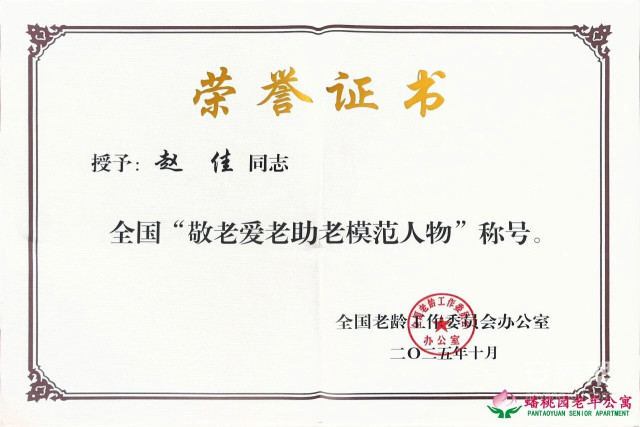 荣誉证书
授予：赵 佳 同志
全国“敬老爱老助老模范人物”称号。
全国老龄工作委员会办公室
二〇二五年十月
全国老龄工作委员会
办公室
蟠桃园老年公寓
PANTAOYUAN SENIOR APARTMENT